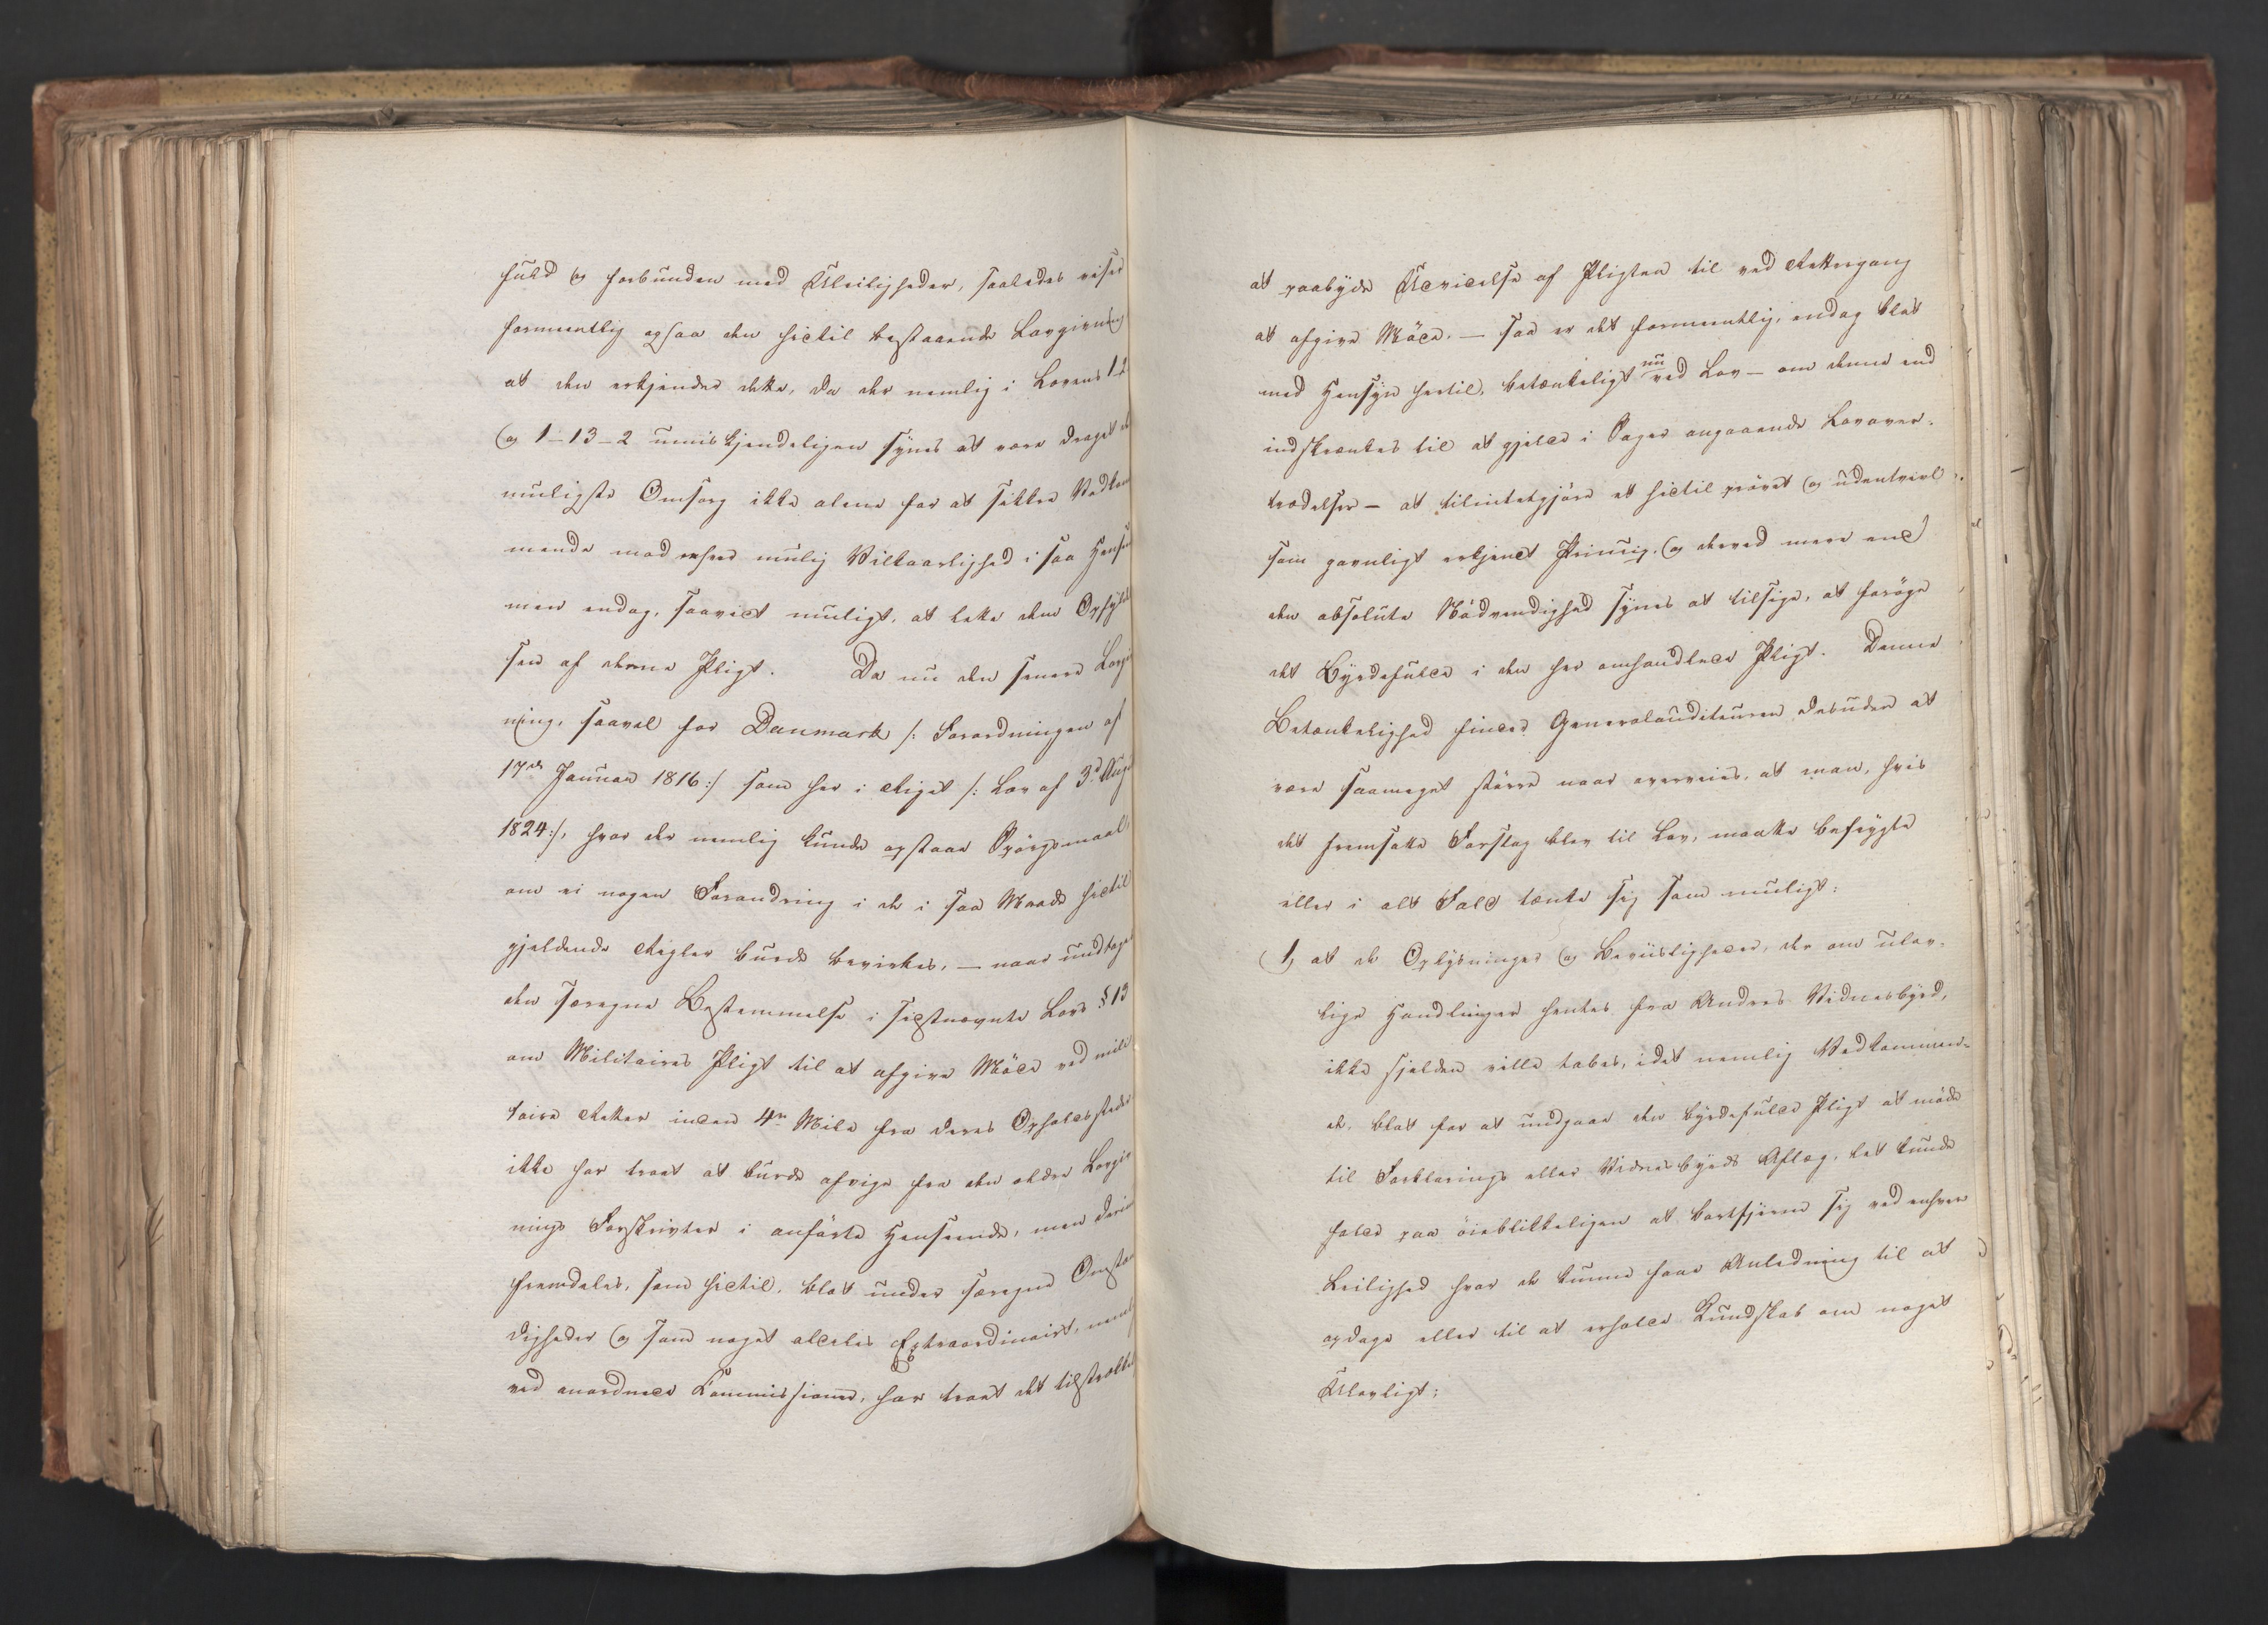 fuld og forbunden med Uleiligheder, saaledes viser
formeentlig ogsaa den hidtil bestaaende Lovgivning
at den erkjender dette, da der nemlig i Lovens 1-2
og 1-13-2 umiskjendeligen synes at være draget al
muligste Omsorg ikke alene for at sikkre Vedkom
mende mod enhver mulig Vilkaarlighed i saa Hense
men endog, saavidt muligt, at lette dem Opfyldel
sen af denne Pligt. Da nu den senere Lovgiv
ning, saavel for Danmark /: Forordningen af
17de Januar 1816 :/ som her i Riget /: Lov af 3d Aug
1824 :/, hvor der nemlig kunde opstaae Spørgsmaal
om ei nogen Forandring i de i saa Maade hidtil
gjældende Regler burde bevirkes, — naar undtages
den særegne Bestemmelse i sidstnævnte Lovs § 13
om Militaires Pligt til at afgive Møde ved mili
taire Retter inden 4re Mile fra deres Opholdssteder
ikke har troet at burde afvige fra den ældre Lovgiv
nings Forskrivter i anførte Henseende, men derim
fremdeles, som hidtil, blot under særegne Omstæn
digheder og som noget aldeles Extraordinairt, neml
ved anordnede Kommissioner, har troet det tilstrække
at paabyde Udvidelse af Pligten til ved Rettergang
at afgive Møde. — saa er det formeentlig, endog blot
med Hensyn hertil, betænkeligt nu ved Lov — om denne end
indskrænkes til at gjelde i Sager angaaende Lovover-
trædelser — at tilintetgjøre et hidtil prøvet og udentvivl
som gavnligt erkjendt Princip, og derved mere end
den absolute Nødvendighed synes at tilsige, at forøge
det Byrdefulde i den her omhandlede Pligt. Denne
Betænkelighed finder Generalauditeuren desuden at
være saameget større naar overveies, at man, hvis
det fremsatte Forslag blev til Lov, maatte befrygte
eller i alt Fald tænke sig som muligt:
1, at de Oplysninger og Beviisligheder, der om ulov-
lige Handlinger hentes fra Andres Vidnesbyrd,
ikke sjelden ville tabes, idet nemlig Vedkommen-
de, blot for at undgaae den byrdefulde Pligt at møde
til Forklarings eller Vidnesbyrds Aflæg, let kunde
falde paa øieblikkeligen at bortfjerne sig ved enhver
Leilighed hvor de kunne faae Anledning til at
opdage eller til at erholde Kundskab om noget
Ulovligt;